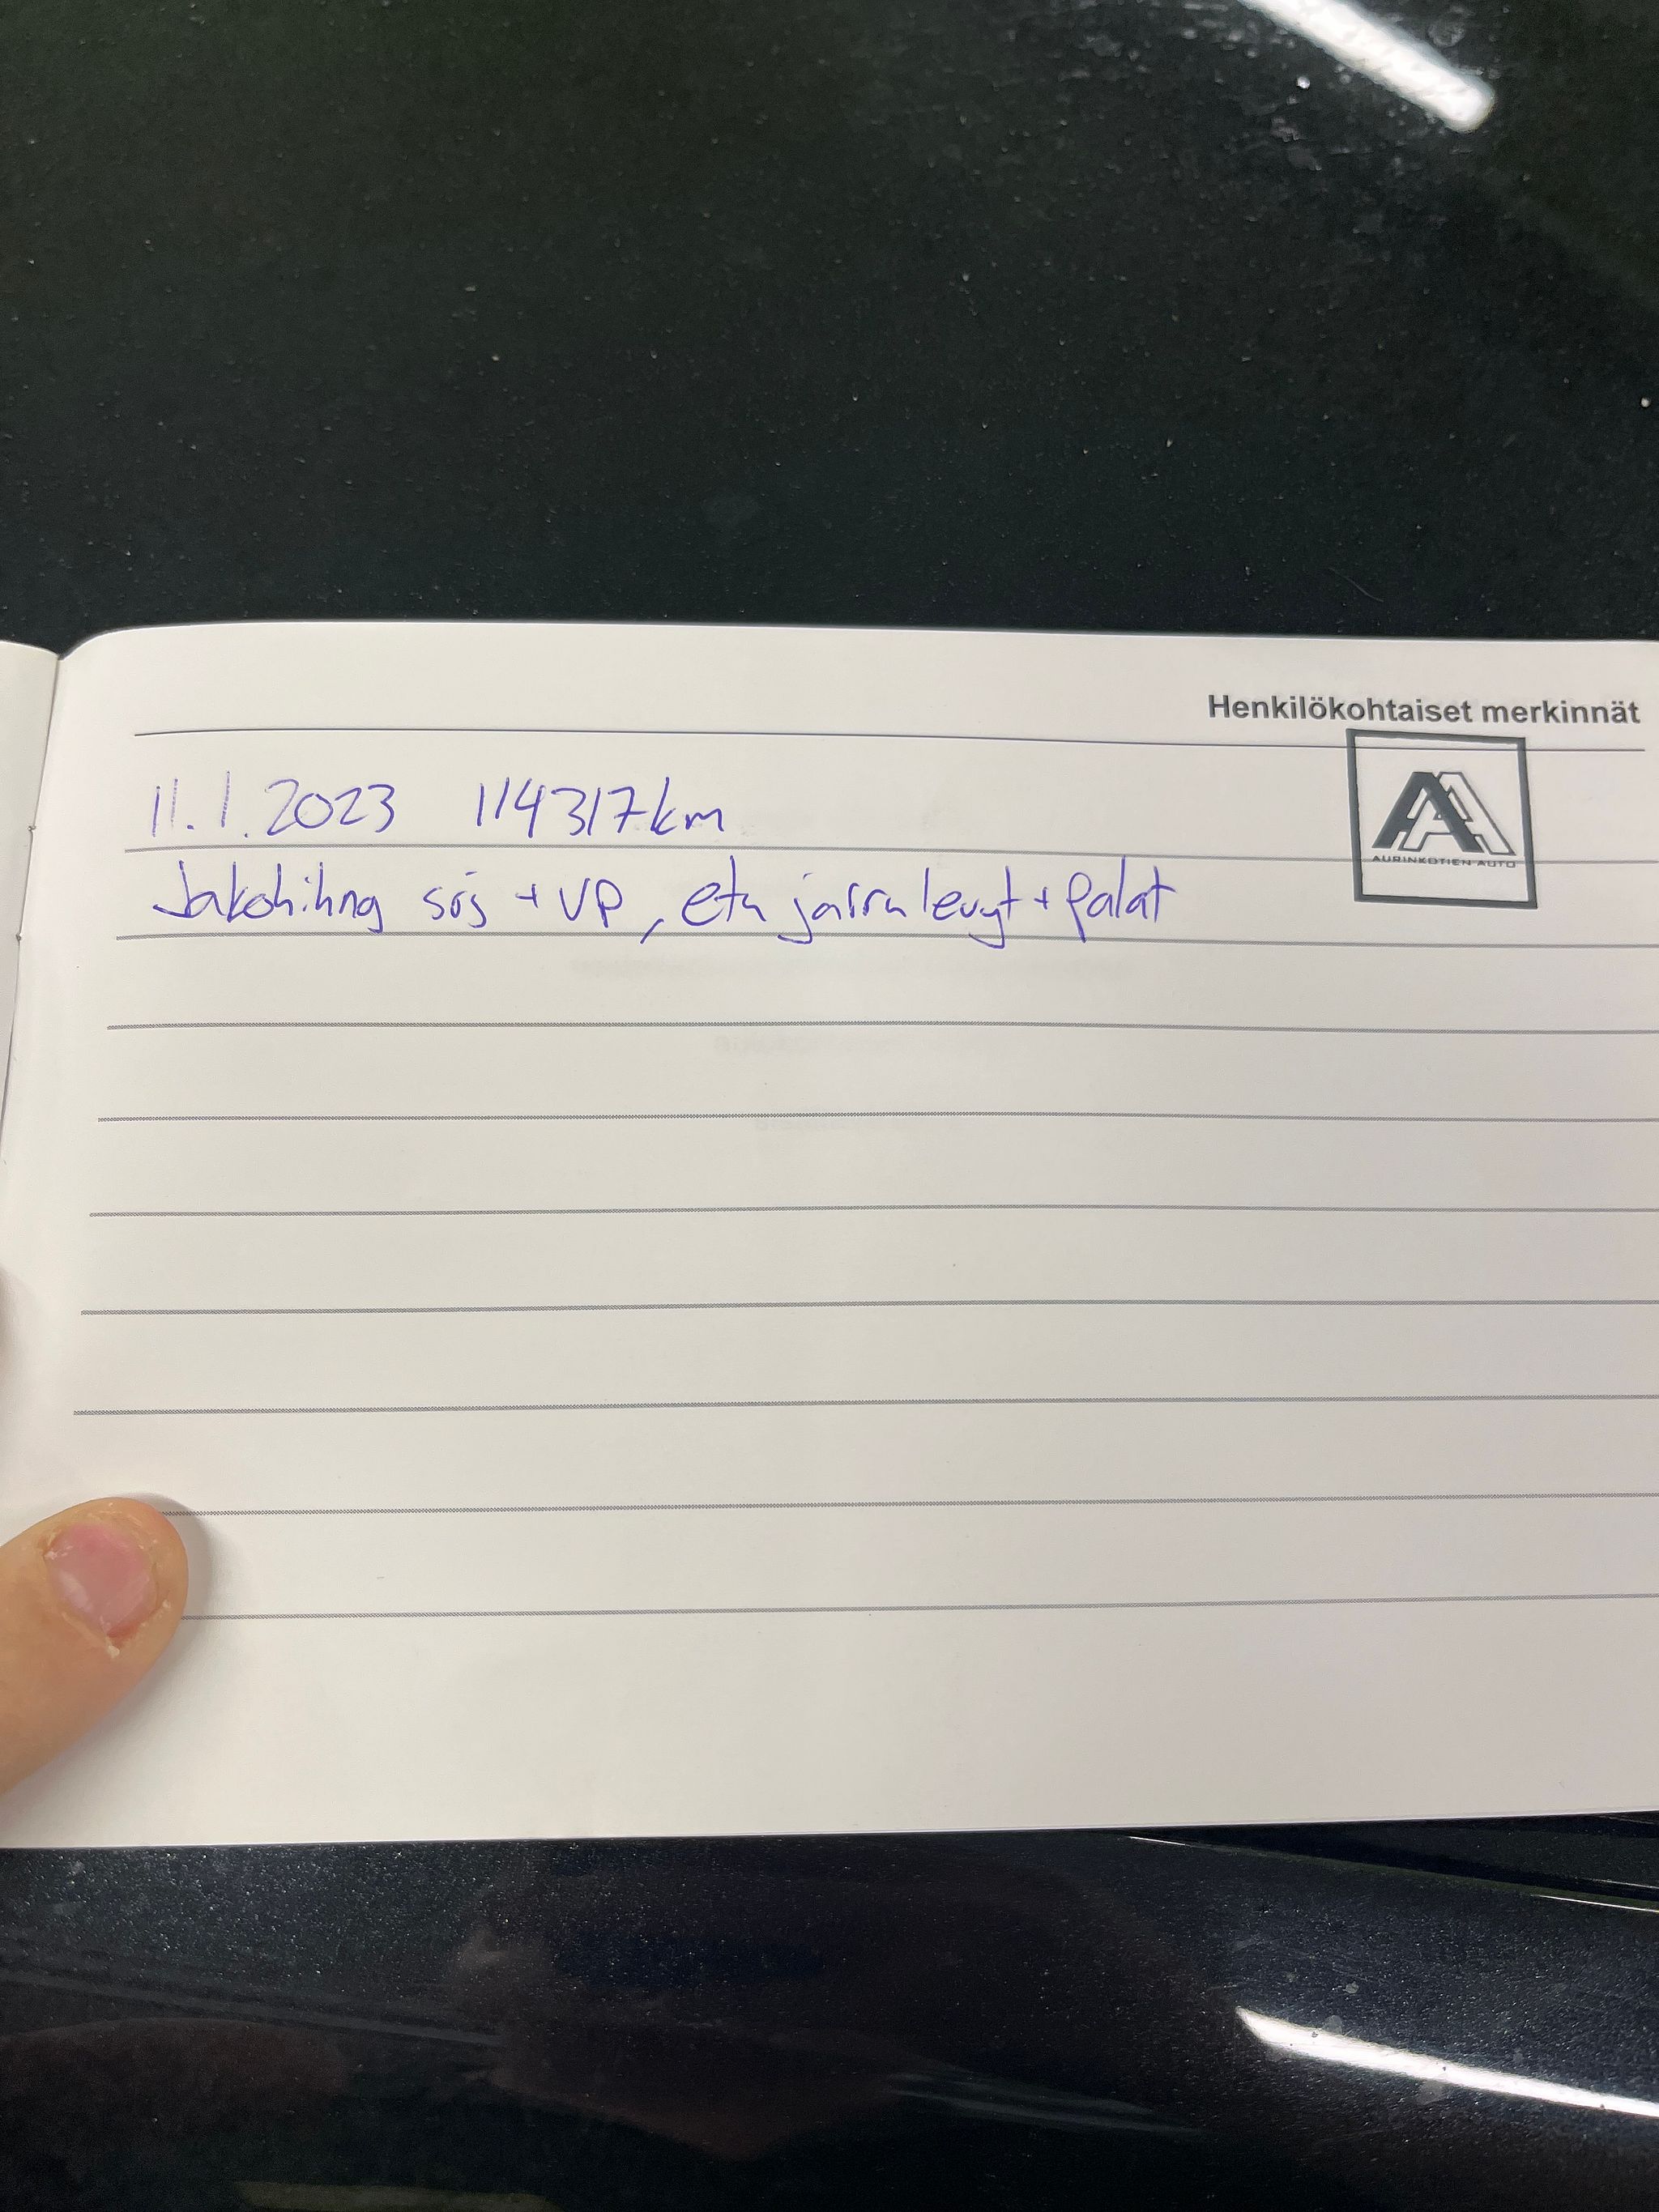 Henkilökohtaiset merkinnät
AA
AURINKOTIEN AUTO
11.1.2023 114317km
Jakohihna sśs + VP, etu jarru levyt + palat